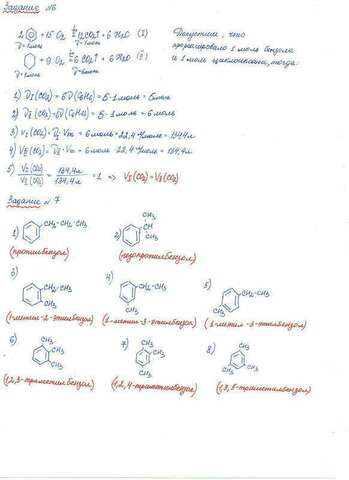 Задание №6
2 + 15 O₂ → 12CO₂↑ + 6 H₂O (I)
ν=1моль ν=6моль
Допустим, что
прореагировало 1 моль бензола
и 1 моль циклогексана, тогда:
+ 9 O₂ → 6CO₂↑ + 6 H₂O (II)
ν=1моль ν=6моль
1) νI(CO₂) = 6ν(C₆H₆) = 6·1моль = 6моль
2) νII(CO₂) = 6ν(C₆H₁₂) = 6·1моль = 6 моль
3) VI(CO₂) = νI · Vm = 6моль · 22,4 л/моль = 134,4л
4) VII(CO₂) = νII · Vm = 6моль · 22,4 л/моль = 134,4л
5) VI(CO₂)/VII(CO₂) = 134,4л/134,4л = 1 => VI(CO₂) = VII(CO₂)
Задание №7
1) CH₂-CH₂-CH₃
(пропилбензол)
2) CH₃ CH CH₃
(изопропилбензол)
3) CH₂-CH₃ CH₃
(1-метил-2-этилбензол)
4) CH₂-CH₃ CH₃
(1-метил-3-этилбензол)
5) CH₂-CH₃ CH₃
6) CH₃ CH₃ CH₃
(1,2,3-триметилбензол)
7) CH₃ CH₃ CH₃
(1,2,4-триметилбензол)
8) CH₃ CH₃ CH₃
(1,3,5-триметилбензол)